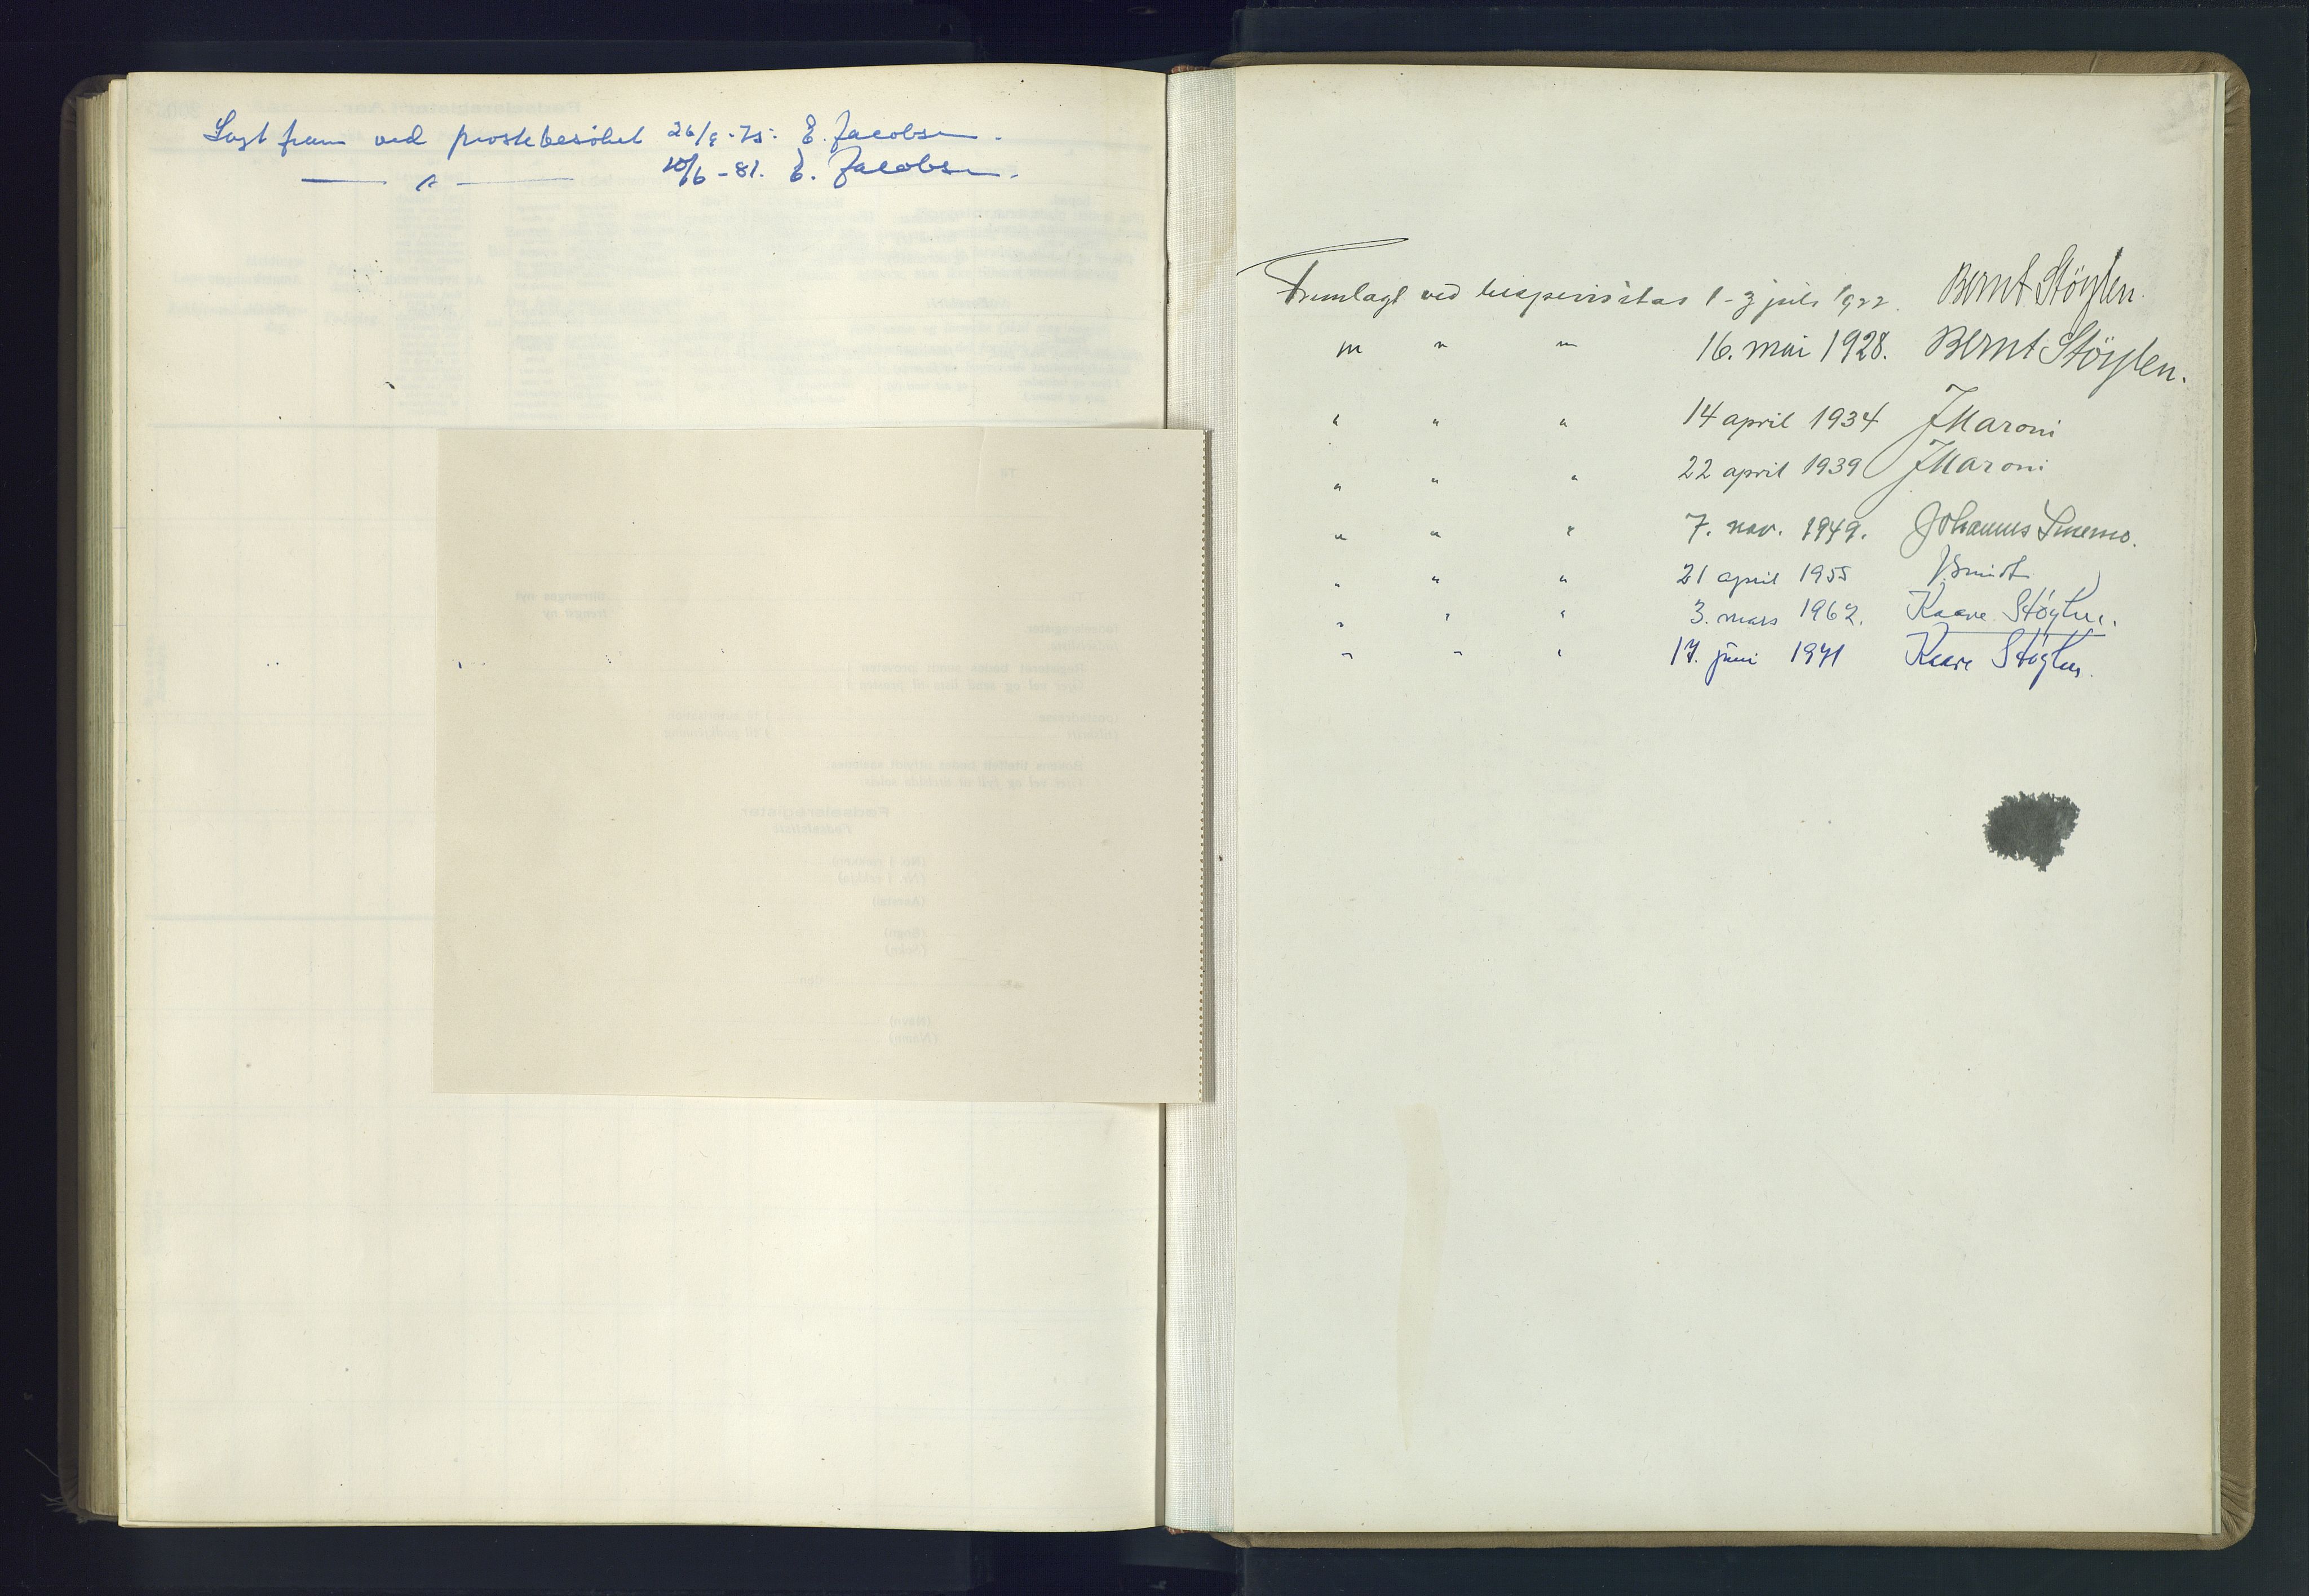 Lagt fram ved prostebesöket 26/8-75. E. Jacobsen.
— " — 10/6-81. E. Jacobsen.
Fremlagt ved bispevisitas 1-3 juli 1922. Bernt Stöylen.
" " " 16. mai 1928. Bernt Stöylen.
" " " 14 april 1934 J Maroni
" " " 22 april 1939 J Maroni
" " " 7. nov. 1949. Johannes Smemo.
" " " 21 april 1955 J Smidt
" " " 3. mars 1962. Kaare Støylen.
" " " 17. juni 1971 Kaare Støylen.